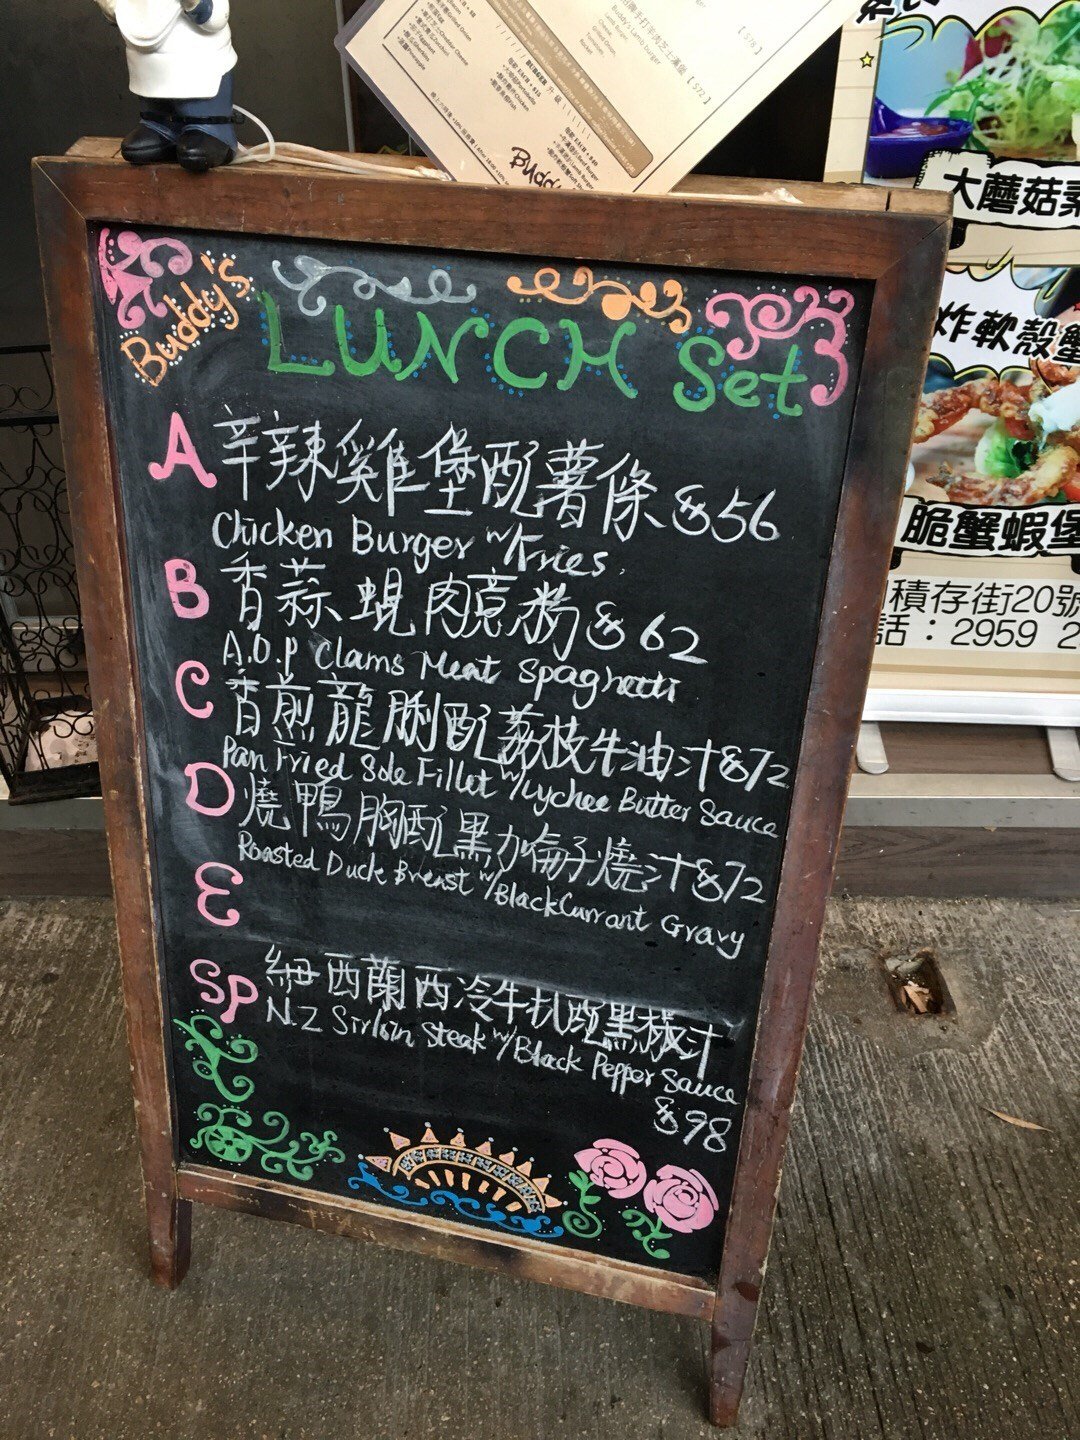 Buddy's
LUNCH Set
A 辛辣雞堡配薯條 $56
Chicken Burger w/Fries.
B 香蒜蜆肉意粉 $62
A.O.P Clams Meat Spaghetti
C 香煎龍脷配荔枝牛油汁 $72
Pan Fried Sole Fillet w/Lychee Butter Sauce
D 燒鴨胸配黑加侖子燒汁 $72
Roasted Duck Breast w/BlackCurrant Gravy
E
SP 紐西蘭西冷牛扒配黑椒汁
N.Z Sirloin Steak w/Black Pepper Sauce
$98
大蘑菇素
炸軟殼蟹
脆蟹蝦堡
積存街20號
話：2959 2